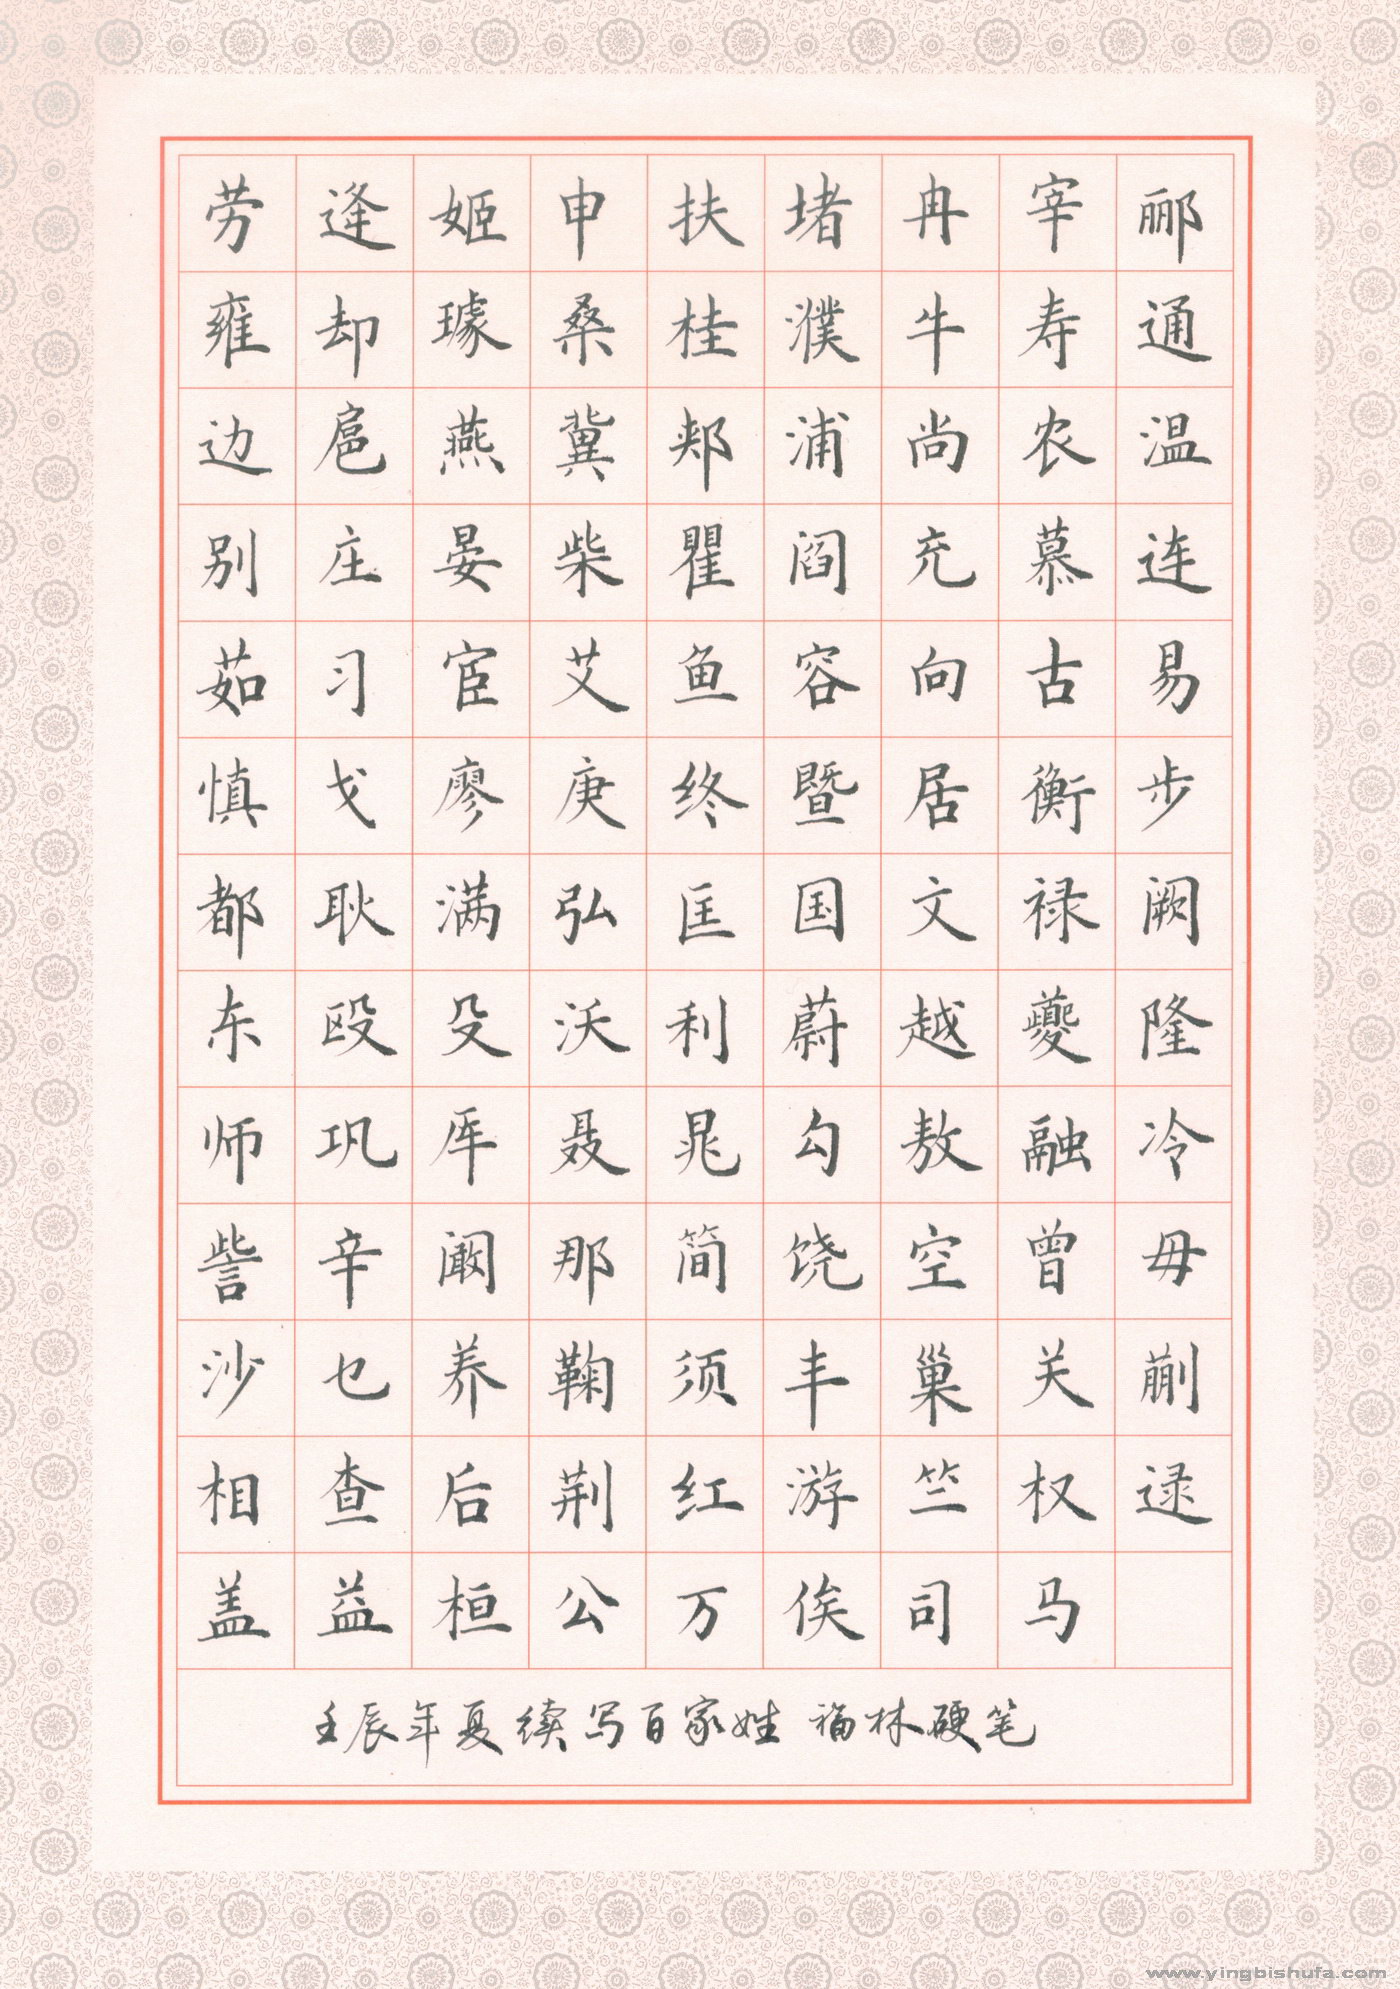 劳逢姬申扶堵冉宰郦
雍却璩桑桂濮牛寿通
边扈燕冀郏浦尚农温
别庄晏柴瞿阎充慕连
茹习宦艾鱼容向古易
慎戈廖庚终暨居衡步
都耿满弘匡国文禄阙
东殴殳沃利蔚越夔隆
师巩厍聂晁勾敖融冷
訾辛阚那简饶空曾毋
沙乜养鞠须丰巢关蒯
相查后荆红游竺权逯
盖益桓公万俟司马
壬辰年夏续写百家姓 福林硬笔
www.yingbishufa.com